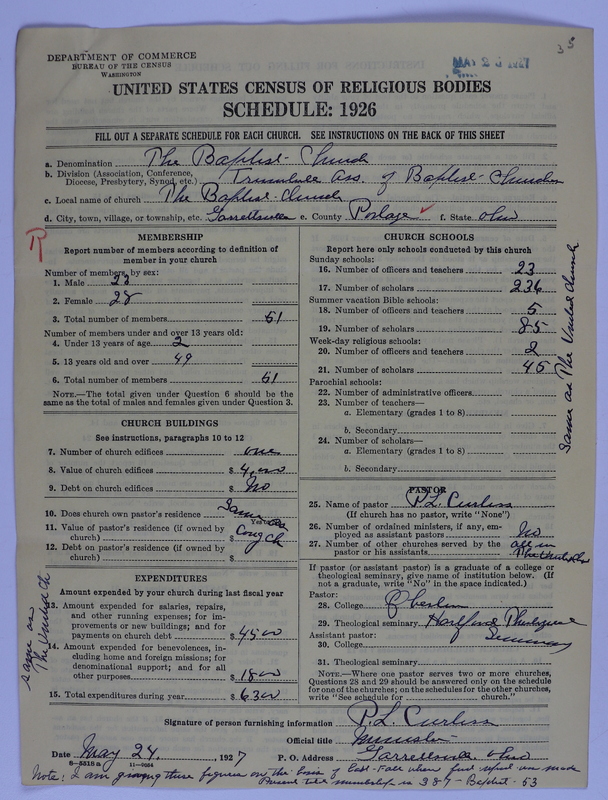 35
DEPARTMENT OF COMMERCE
BUREAU OF THE CENSUS
WASHINGTON
UNITED STATES CENSUS OF RELIGIOUS BODIES
SCHEDULE: 1926
FILL OUT A SEPARATE SCHEDULE FOR EACH CHURCH. SEE INSTRUCTIONS ON THE BACK OF THIS SHEET
a. Denomination The Baptist Church
b. Division (Association, Conference, Diocese, Presbytery, Synod, etc.) Trumbull Ass. of Baptist Churches
c. Local name of church The Baptist Church
d. City, town, village, or township, etc. Garrettsville e. County Portage f. State Ohio
R
MEMBERSHIP
Report number of members according to definition of
member in your church
Number of members by sex:
1. Male 23
2. Female 28
3. Total number of members 51
Number of members under and over 13 years old:
4. Under 13 years of age 2
5. 13 years old and over 49
6. Total number of members 51
NOTE.—The total given under Question 6 should be
same as the total of males and females given under Question 3.
CHURCH BUILDINGS
See instructions, paragraphs 10 to 12
7. Number of church edifices one
8. Value of church edifices $
9. Debt on church edifices $ No
10. Does church own pastor's residence Same as
11. Value of pastor's residence (if owned by
church) $ Cong Ch
12. Debt on pastor's residence (if owned by
church) $
EXPENDITURES
Amount expended by your church during last fiscal year
13. Amount expended for salaries, repairs,
and other running expenses; for im-
provements or new buildings; and for
payments on church debt $ 4500
14. Amount expended for benevolences, in-
cluding home and foreign missions; for
denominational support; and for all
other purposes $ 1800
15. Total expenditures during year $ 6300
same as
The United Ch
CHURCH SCHOOLS
Report here only schools conducted by this church
Sunday schools:
16. Number of officers and teachers 23
17. Number of scholars 236
Summer vacation Bible schools:
18. Number of officers and teachers 5
19. Number of scholars 85
Week-day religious schools:
20. Number of officers and teachers 2
21. Number of scholars 45
Parochial schools:
22. Number of administrative officers
23. Number of teachers—
a. Elementary (grades 1 to 8)
b. Secondary
24. Number of scholars—
a. Elementary (grades 1 to 8)
b. Secondary
Same as The United Church
PASTOR
25. Name of pastor P.L. Curtiss
(If church has no pastor, write "None")
26. Number of ordained ministers, if any, em-
ployed as assistant pastors No
27. Number of other churches served by the
pastor or his assistants all in
If pastor (or assistant pastor) is a graduate of a college or
theological seminary, give name of institution below. (If
not a graduate, write "No" in the space indicated.)
Pastor:
28. College Oberlin
29. Theological seminary Hartford Theological
Seminary
Assistant pastor:
30. College
31. Theological seminary
NOTE.—Where one pastor serves two or more churches,
Questions 28 and 29 should be answered only on the schedule
for one of the churches; on the schedules for the other churches,
write "See schedule for church."
Signature of person furnishing information P.L. Curtiss
Official title Minister
Date May 24, 1927 P. O. Address Garrettsville Ohio
8—5518 a 11—9084
Note: I am giving these figures on the basis of last Fall when first report was made
Present total membership is 387 - Baptist - 53